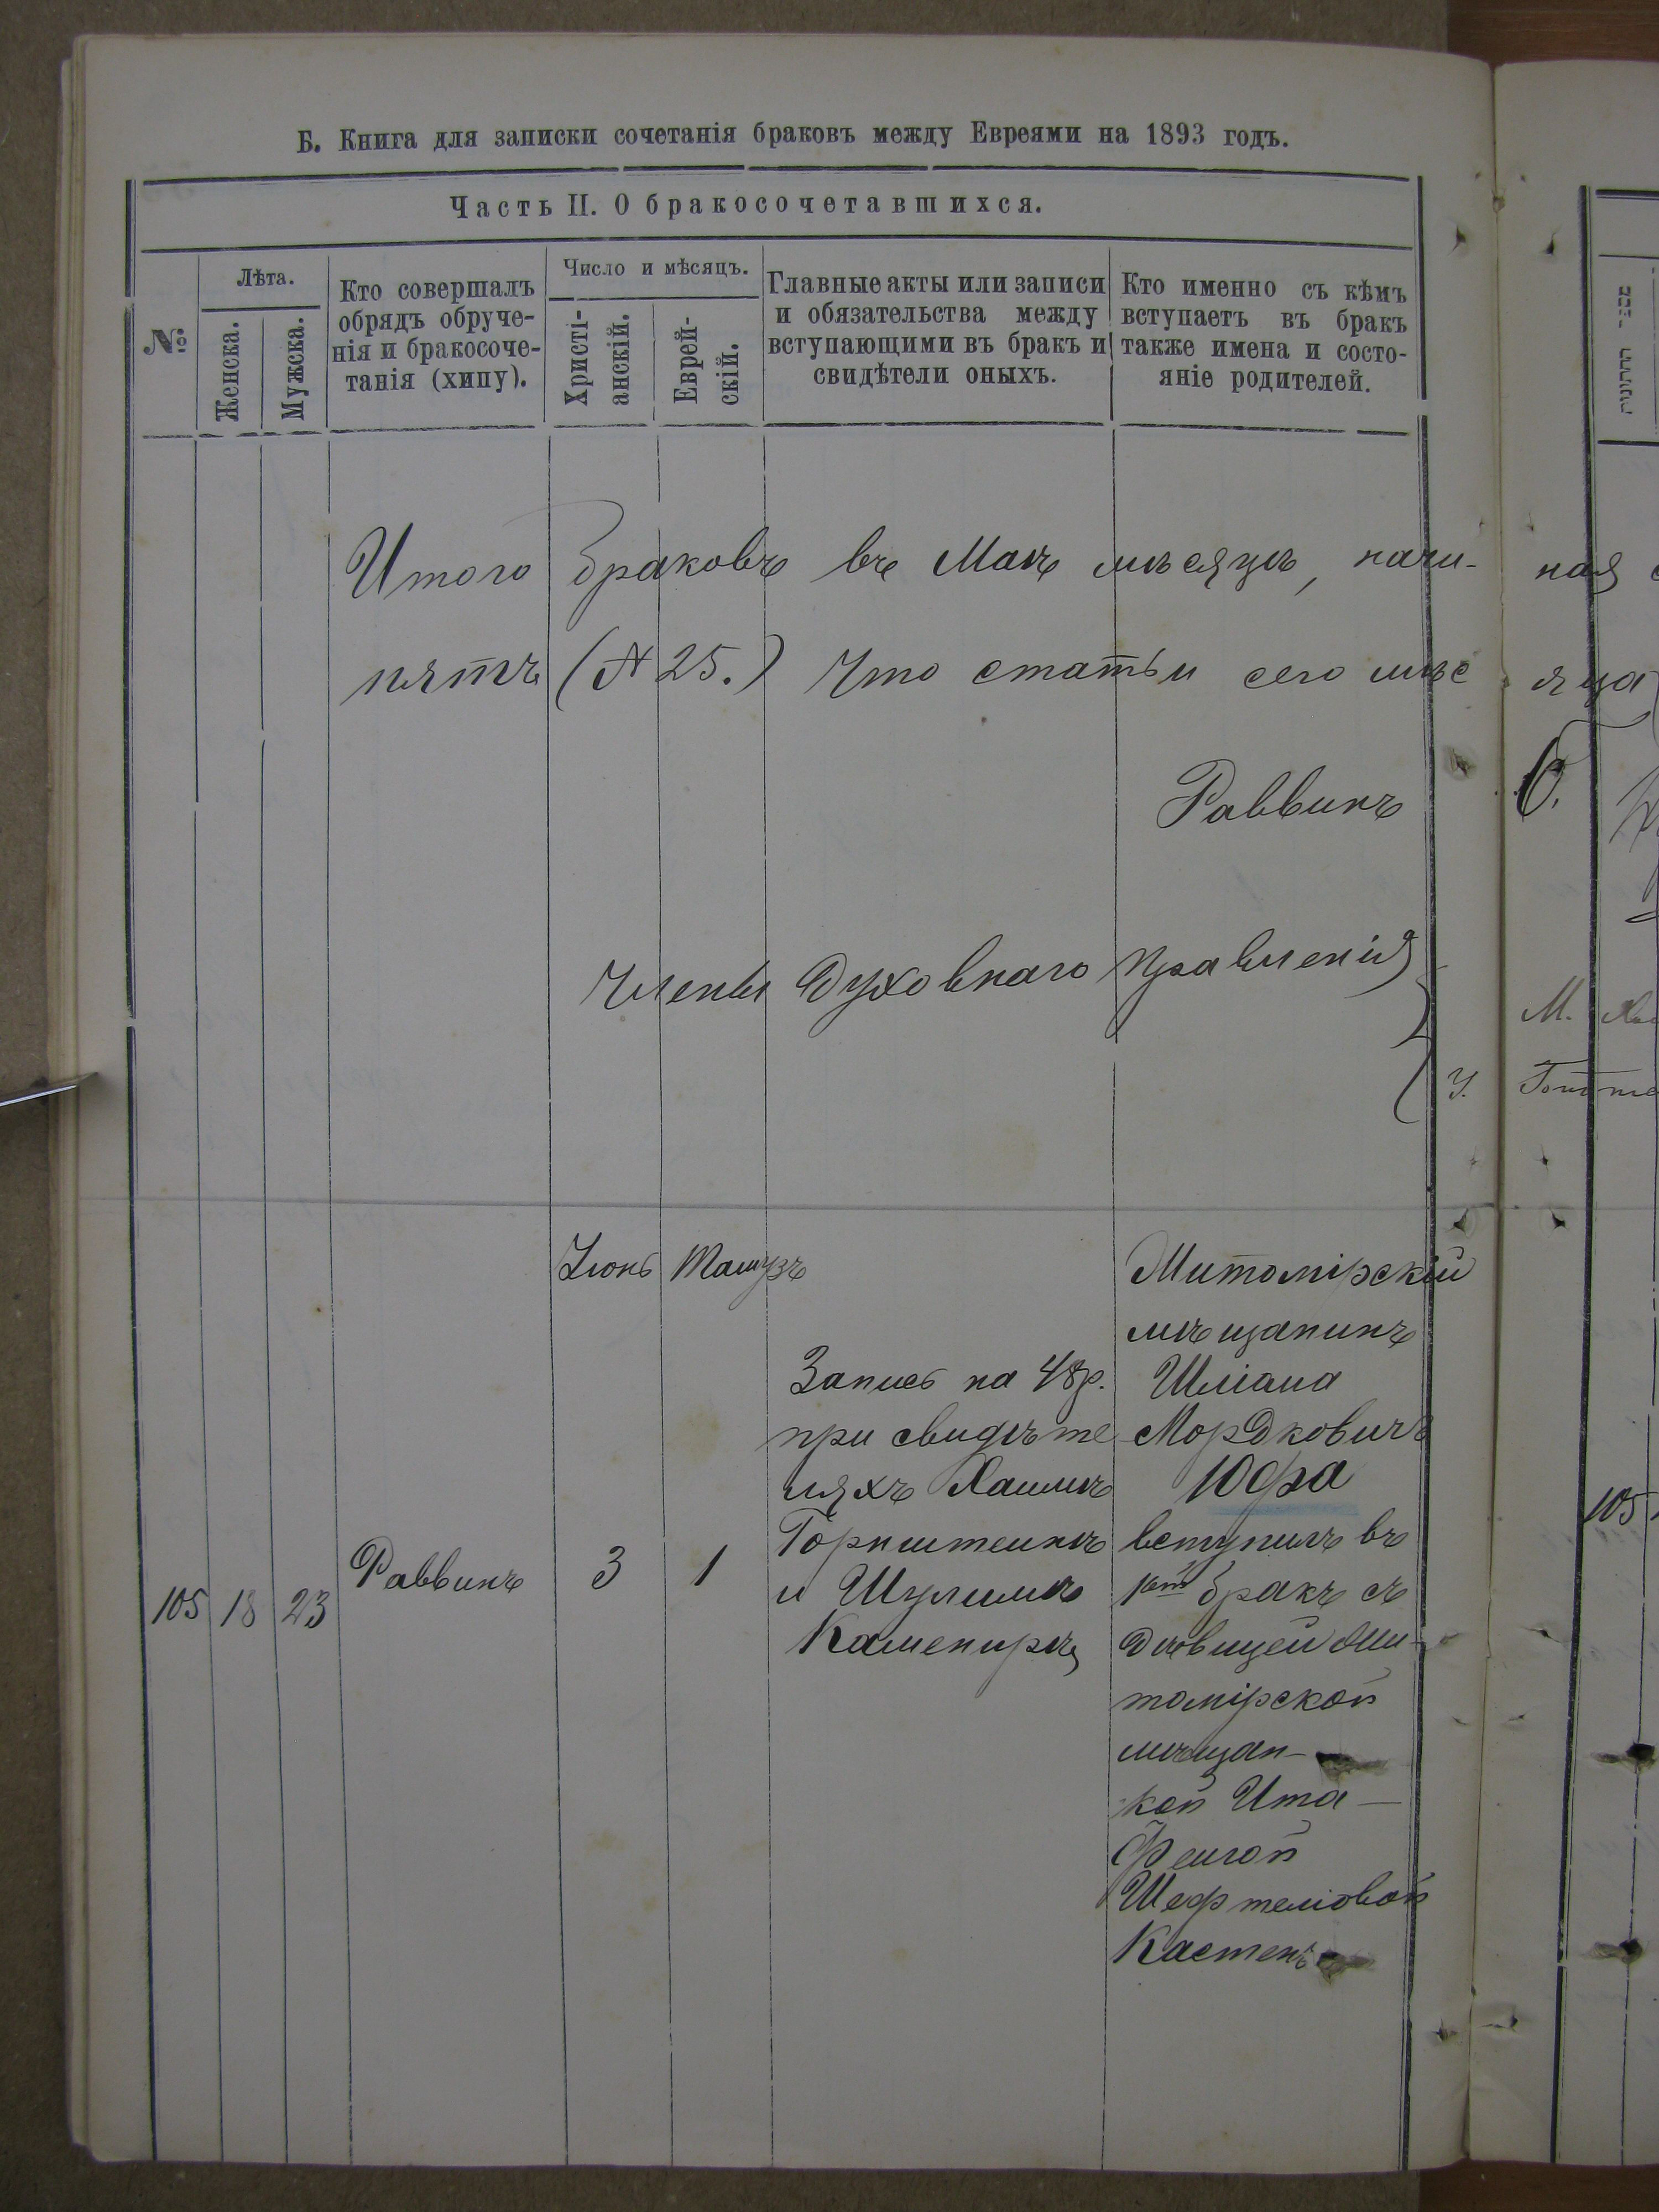 Б. Книга для записки сочетанія браковъ между Евреями на 1893 годъ.
Часть II. О бракосочетавшихся.
№
Лѣта.
Женска.
Мужска.
Кто совершалъ
обрядъ обруче-
нія и бракосоче-
танія (хипу).
Число и мѣсяцъ.
Христі-
анскій.
Еврей-
скій.
Главные акты или записи
и обязательства между
вступающими въ бракъ и
свидѣтели оныхъ.
Кто именно съ кѣмъ
вступаетъ въ бракъ
также имена и состо-
яніе родителей.
Итого браковъ въ Маѣ мѣсяцѣ, начи- ная
пять (№ 25.) Что статьи сего мѣс яца
Раввинъ
Члены Духовнаго Правленія
Іюнь Тамузъ
105 18 23 Раввинъ 3 1
Запись на 48р.
при свидѣте
ляхъ Хаимѣ
Горнштейнѣ
и Шулимѣ
Каменирѣ
Житомірскій
мѣщанинъ
Шліама
Мордковичъ
Юфа
вступилъ въ
1ый бракъ съ
дѣвицей Жи-
томірской
мѣщан-
кой Ита-
Фейгой
Шефтеліовой
Кастенъ
105